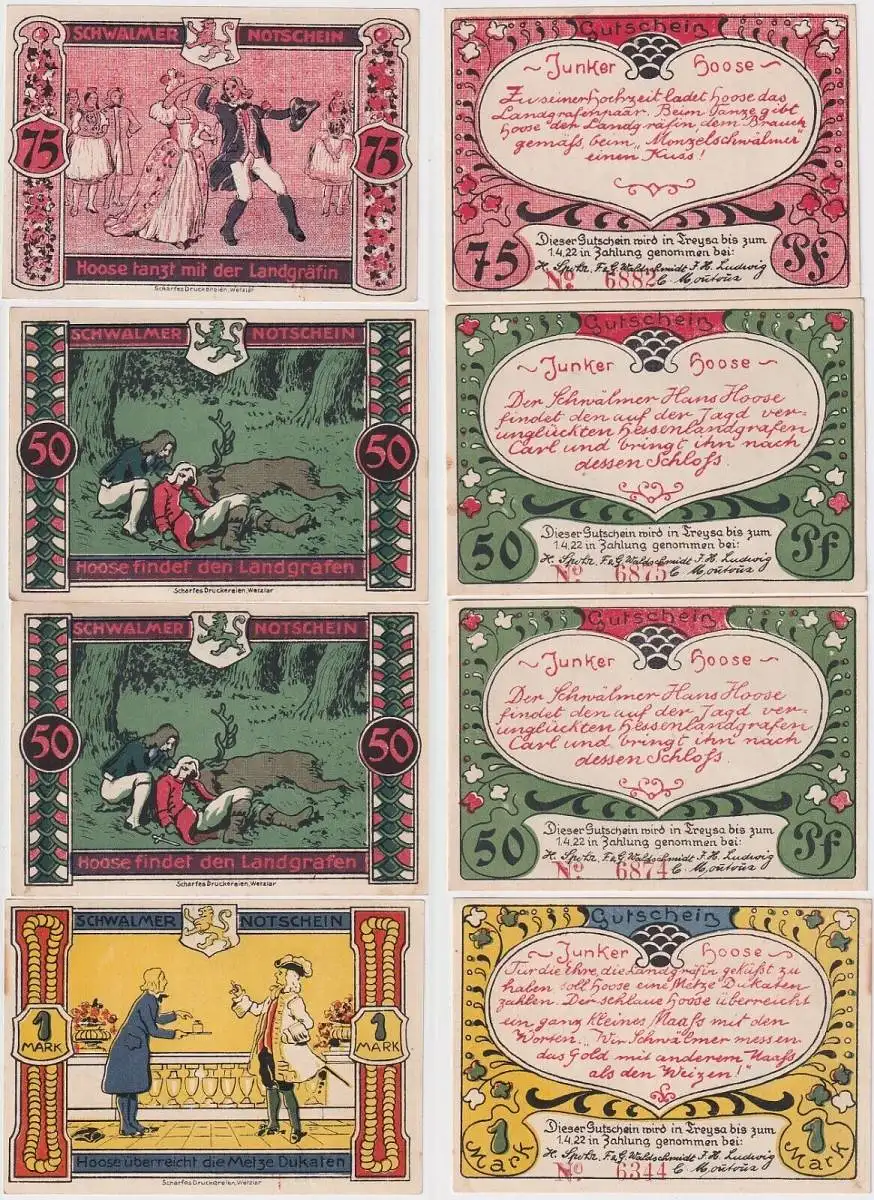 SCHWALMER NOTSCHEIN
75 75
Hoose tanzt mit der Landgräfin
Scharfes Druckereien, Wetzlar
Gutschein
~ Junker Hoose ~
Zu seiner Hochzeit ladet Hoose das
Landgrafenpaar. Beim Tanze gibt
Hoose der Landgräfin, dem Brauch
gemäß, beim „Monzelschwälmer"
einen Kuss!
Dieser Gutschein wird in Treysa bis zum
1.4.22 in Zahlung genommen bei:
75 Pf
H. Spohr, F. & G. Waldschmidt J. H. Ludwig
No 6882 C. Moutoux
SCHWALMER NOTSCHEIN
50 50
Hoose findet den Landgrafen
Scharfes Druckereien, Wetzlar
Gutschein
~ Junker Hoose ~
Der Schwälmer Hans Hoose
findet den auf der Jagd ver-
unglückten Hessenlandgrafen
Carl und bringt ihn nach
dessen Schloß
Dieser Gutschein wird in Treysa bis zum
1.4.22 in Zahlung genommen bei:
50 Pf
H. Spohr, F. & G. Waldschmidt J. H. Ludwig
No 6875 C. Moutoux
SCHWALMER NOTSCHEIN
50 50
Hoose findet den Landgrafen
Scharfes Druckereien, Wetzlar
Gutschein
~ Junker Hoose ~
Der Schwälmer Hans Hoose
findet den auf der Jagd ver-
unglückten Hessenlandgrafen
Carl und bringt ihn nach
dessen Schloß
Dieser Gutschein wird in Treysa bis zum
1.4.22 in Zahlung genommen bei:
50 Pf
H. Spohr, F. & G. Waldschmidt J. H. Ludwig
No 6874 C. Moutoux
SCHWALMER NOTSCHEIN
1 MARK 1 MARK
Hoose überreicht die Metze Dukaten
Scharfes Druckereien, Wetzlar
Gutschein
~ Junker Hoose ~
Für die Ehre, die Landgräfin geküßt zu
haben soll Hoose eine Metze Dukaten
zahlen. Der schlaue Hoose überreicht
ein ganz kleines Maaß mit den
Worten: „Wir Schwälmer messen
das Gold mit anderem Maaß
als den Weizen!"
Dieser Gutschein wird in Treysa bis zum
1.4.22 in Zahlung genommen bei:
1 Mark 1 Mark
H. Spohr, F. & G. Waldschmidt J. H. Ludwig
No 6344 C. Moutoux